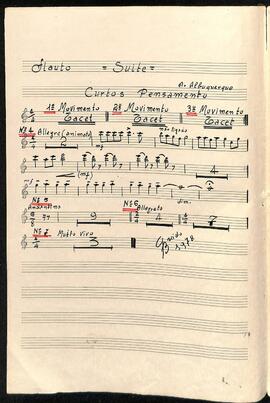 Flauto = Suite =
A. Albuquerque
Curtos Pensamento
1º Movimento 2º Movimento 3º Movimento
Tacet Tacet Tacet
Nº 4 Allegro (animato)
2
(mf)
4
mf
dim.
Nº 5 Nº 6
Andantino Allegreto
9 4 7
Nº 7 Molto Vivo
3
1978